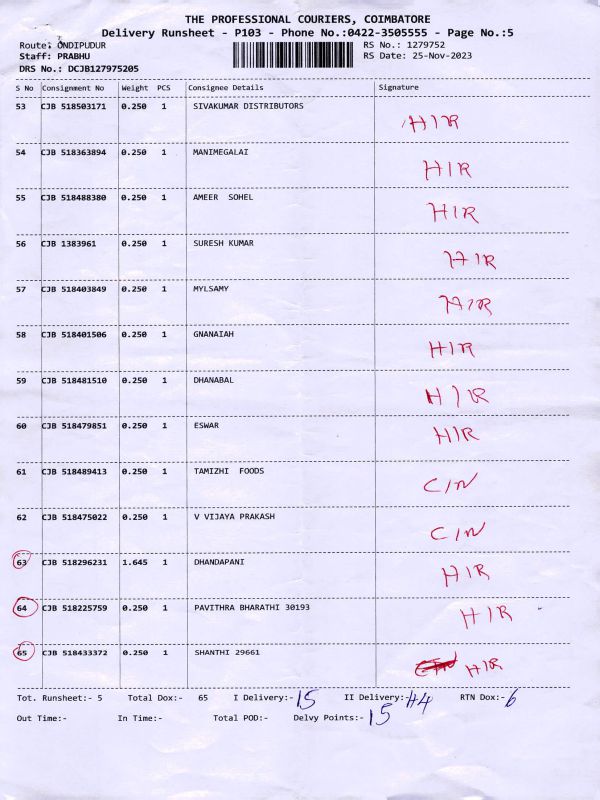 THE PROFESSIONAL COURIERS, COIMBATORE
Delivery Runsheet - P103 - Phone No.:0422-3505555 - Page No.:5
Route: ONDIPUDUR RS No.: 1279752
Staff: PRABHU RS Date: 25-Nov-2023
DRS No.: DCJB127975205
S No Consignment No Weight PCS Consignee Details Signature
53 CJB 518503171 0.250 1 SIVAKUMAR DISTRIBUTORS H I R
54 CJB 518363894 0.250 1 MANIMEGALAI H I R
55 CJB 518488380 0.250 1 AMEER SOHEL H I R
56 CJB 1383961 0.250 1 SURESH KUMAR H I R
57 CJB 518403849 0.250 1 MYLSAMY H I R
58 CJB 518401506 0.250 1 GNANAIAH H I R
59 CJB 518481510 0.250 1 DHANABAL H I R
60 CJB 518479851 0.250 1 ESWAR H I R
61 CJB 518489413 0.250 1 TAMIZHI FOODS C I N
62 CJB 518475022 0.250 1 V VIJAYA PRAKASH C I N
63 CJB 518296231 1.645 1 DHANDAPANI H I R
64 CJB 518225759 0.250 1 PAVITHRA BHARATHI 30193 H I R
65 CJB 518433372 0.250 1 SHANTHI 29661 H I R
Tot. Runsheet:- 5 Total Dox:- 65 I Delivery:- 15 II Delivery:- 44 RTN Dox:- 6
Out Time:- In Time:- Total POD:- Delvy Points:- 15